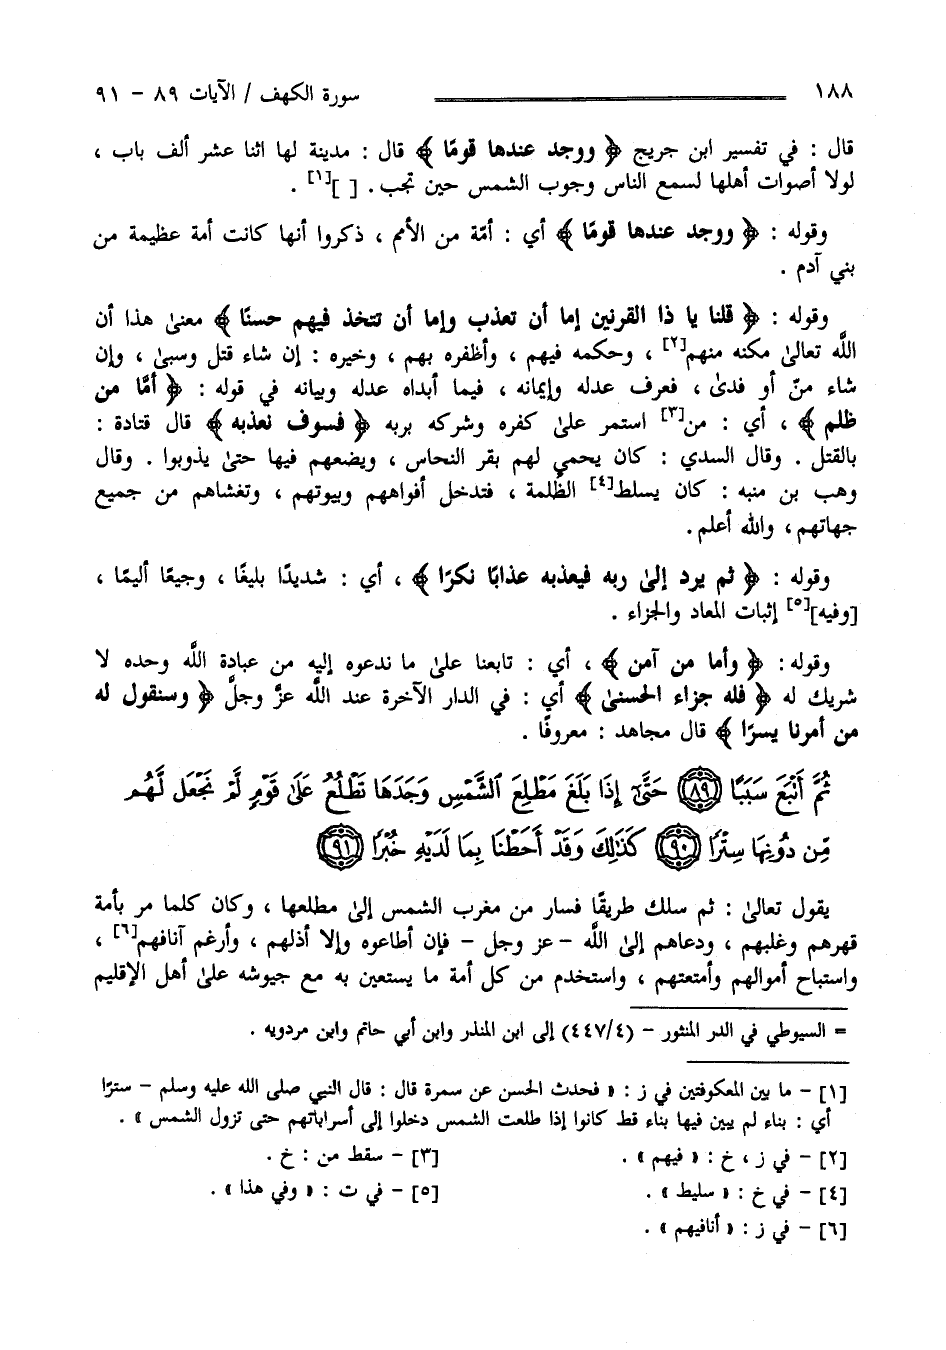 ١٨٨ سورة الكهف / الآيات ٨٩ - ٩١
قال : في تفسير ابن جريج ﴿ ووجد عندها قومًا ﴾ قال : مدينة لها اثنا عشر ألف باب ،
لولا أصوات أهلها لسمع الناس وجوب الشمس حين تجب . [ ][١] .
وقوله : ﴿ ووجد عندها قومًا ﴾ أي : أمّة من الأمم ، ذكروا أنها كانت أمة عظيمة من
بني آدم .
وقوله : ﴿ قلنا يا ذا القرنين إما أن تعذب وإما أن تتخذ فيهم حسنًا ﴾ معنىٰ هذا أن
اللَّه تعالىٰ مكنه منهم[٢] ، وحكمه فيهم ، وأظفره بهم ، وخيره : إن شاء قتل وسبىٰ ، وإن
شاء منّ أو فدىٰ ، فعرف عدله وإيمانه ، فيما أبداه عدله وبيانه في قوله : ﴿ أمّا من
ظلم ﴾ ، أي : من[٣] استمر علىٰ كفره وشركه بربه ﴿ فسوف نعذبه ﴾ قال قتادة :
بالقتل . وقال السدي : كان يحمي لهم بقر النحاس ، ويضعهم فيها حتىٰ يذوبوا . وقال
وهب بن منبه : كان يسلط[٤] الظُلمة ، فتدخل أفواههم وبيوتهم ، وتغشاهم من جميع
جهاتهم ، والله أعلم .
وقوله : ﴿ ثم يرد إلىٰ ربه فيعذبه عذابًا نكرًا ﴾ ، أي : شديدًا بليغًا ، وجيعًا أليمًا ،
[وفيه][٥] إثبات المعاد والجزاء .
وقوله : ﴿ وأما من آمن ﴾ ، أي : تابعنا علىٰ ما ندعوه إليه من عبادة اللَّه وحده لا
شريك له ﴿ فله جزاء الحسنىٰ ﴾ أي : في الدار الآخرة عند اللَّه عزَّ وجلَّ ﴿ وسنقول له
من أمرنا يسرًا ﴾ قال مجاهد : معروفًا .
ثُمَّ أَتْبَعَ سَبَبًا ﴿٨٩﴾ حَتَّىٰٓ إِذَا بَلَغَ مَطْلِعَ ٱلشَّمْسِ وَجَدَهَا تَطْلُعُ عَلَىٰ قَوْمٍ لَّمْ نَجْعَل لَّهُم
مِّن دُونِهَا سِتْرًا ﴿٩٠﴾ كَذَٰلِكَ وَقَدْ أَحَطْنَا بِمَا لَدَيْهِ خُبْرًا ﴿٩١﴾
يقول تعالىٰ : ثم سلك طريقًا فسار من مغرب الشمس إلىٰ مطلعها ، وكان كلما مر بأمة
قهرهم وغلبهم ، ودعاهم إلىٰ اللَّه - عز وجل - فإن أطاعوه وإلا أذلهم ، وأرغم آنافهم[٦] ،
واستباح أموالهم وأمتعتهم ، واستخدم من كل أمة ما يستعين به مع جيوشه علىٰ أهل الإقليم
= السيوطي في الدر المنثور - (٤٤٧/٤) إلى ابن المنذر وابن أبي حاتم وابن مردويه .
[١] - ما بين المعكوفتين في ز : « فحدث الحسن عن سمرة قال : قال النبي صلى الله عليه وسلم - سترًا
أي : بناء لم يبين فيها بناء قط كانوا إذا طلعت الشمس دخلوا إلى أسراباتهم حتى تزول الشمس » .
[٢] - في ز ، خ : « فيهم » . [٣] - سقط من : خ .
[٤] - في خ : « سليط » . [٥] - في ت : « وفي هذا » .
[٦] - في ز : « أنافيهم » .